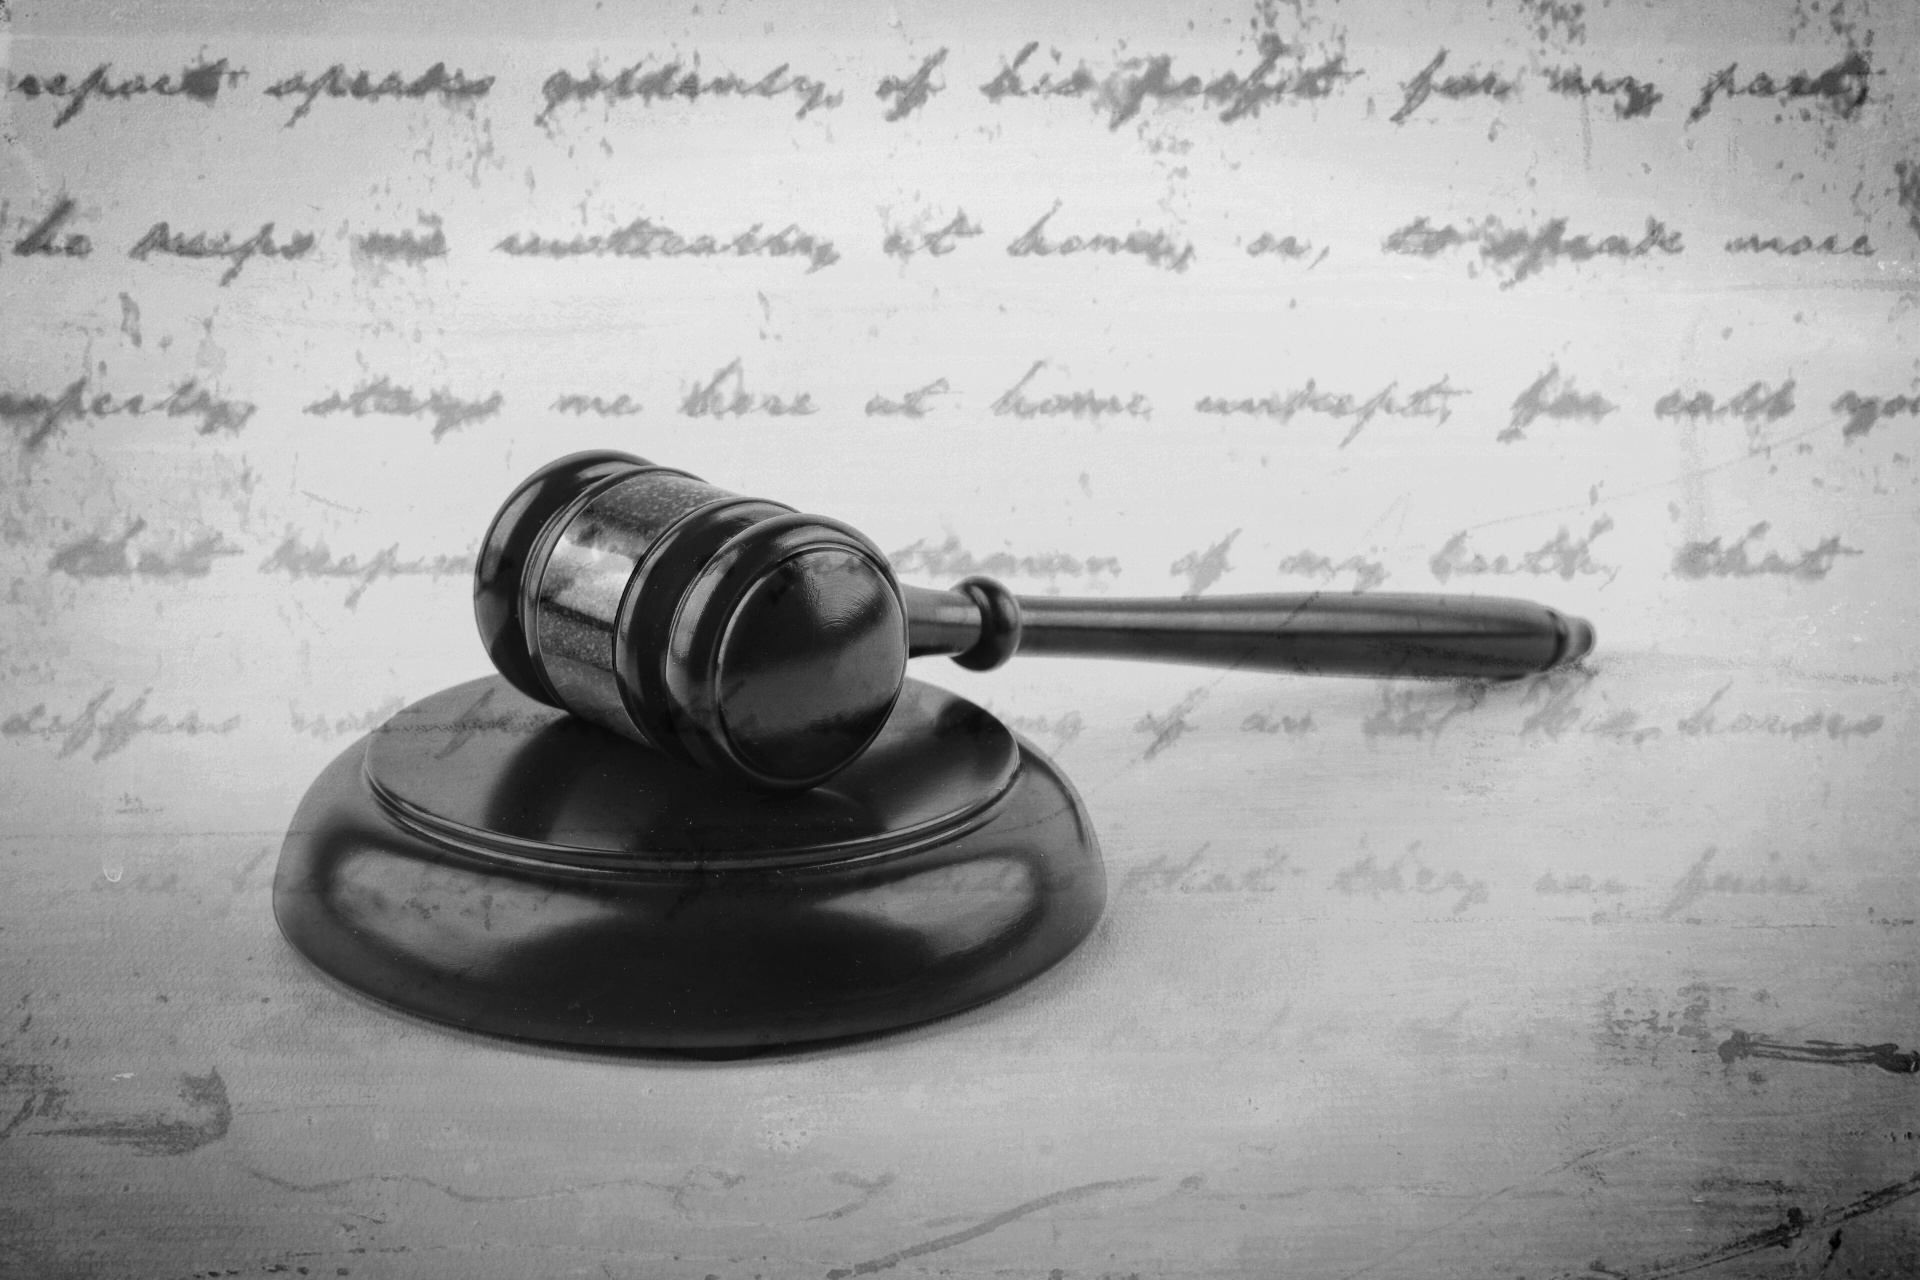 report speaks goldenly of his profit for my part,
he keeps me rustically at home, or, to speak more
stays me here at home unkept, for call you
that of my birth, that
differs not of an ox? His horses
are that they are fair